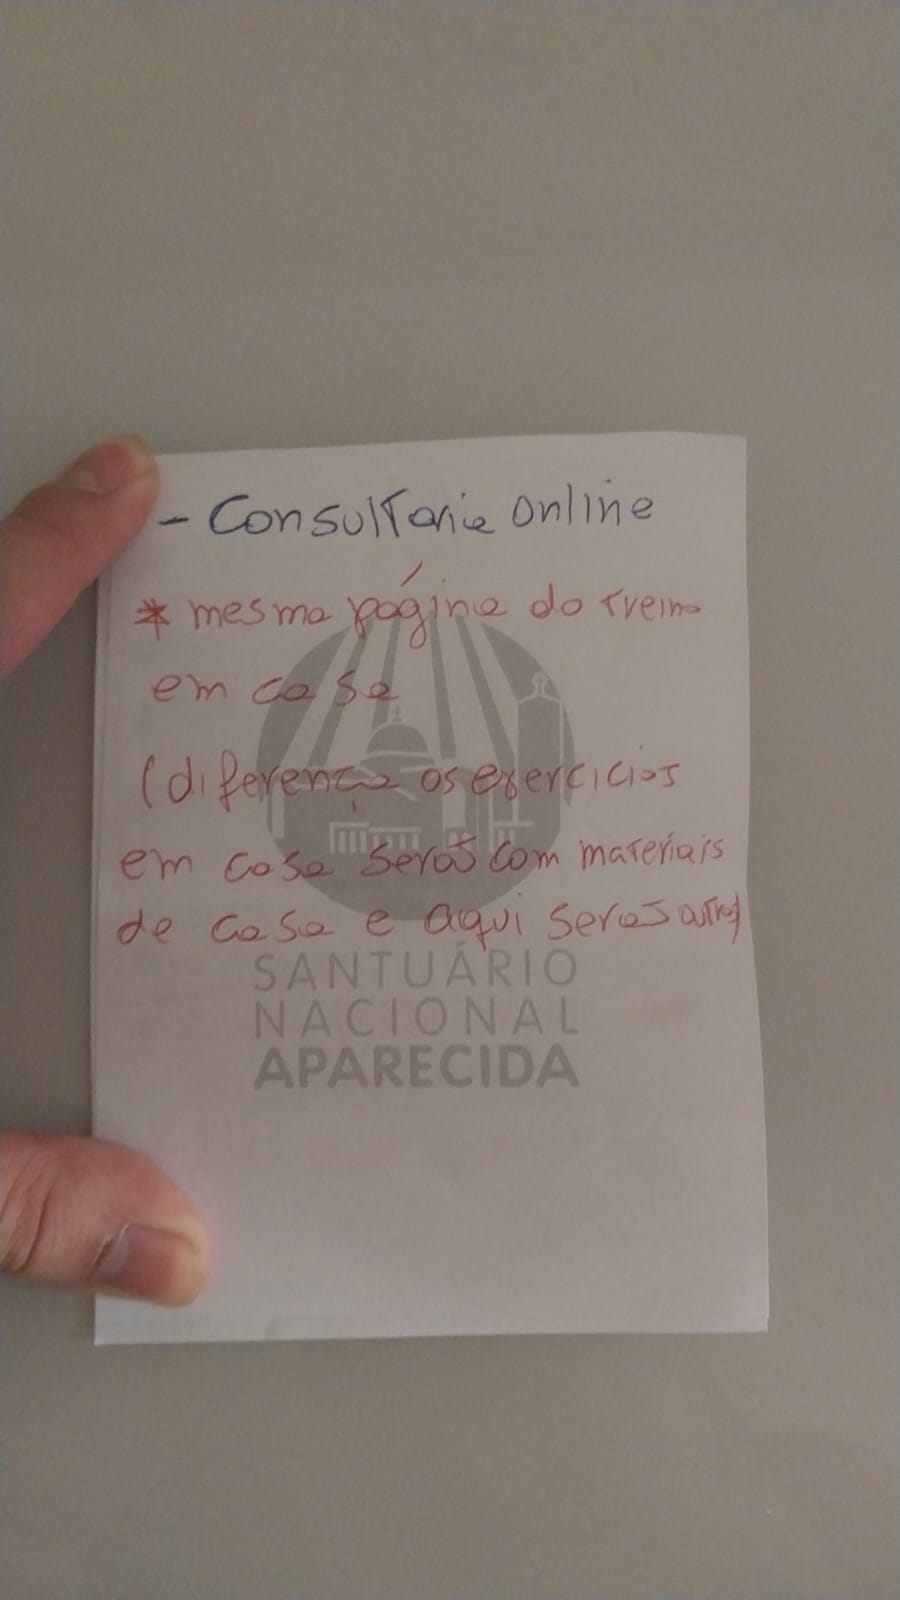 - Consultoria online
* mesma página do treino
em casa
(diferença os exercicios
em casa serão com materiais
de casa e aqui serão outros)
SANTUÁRIO
NACIONAL
APARECIDA